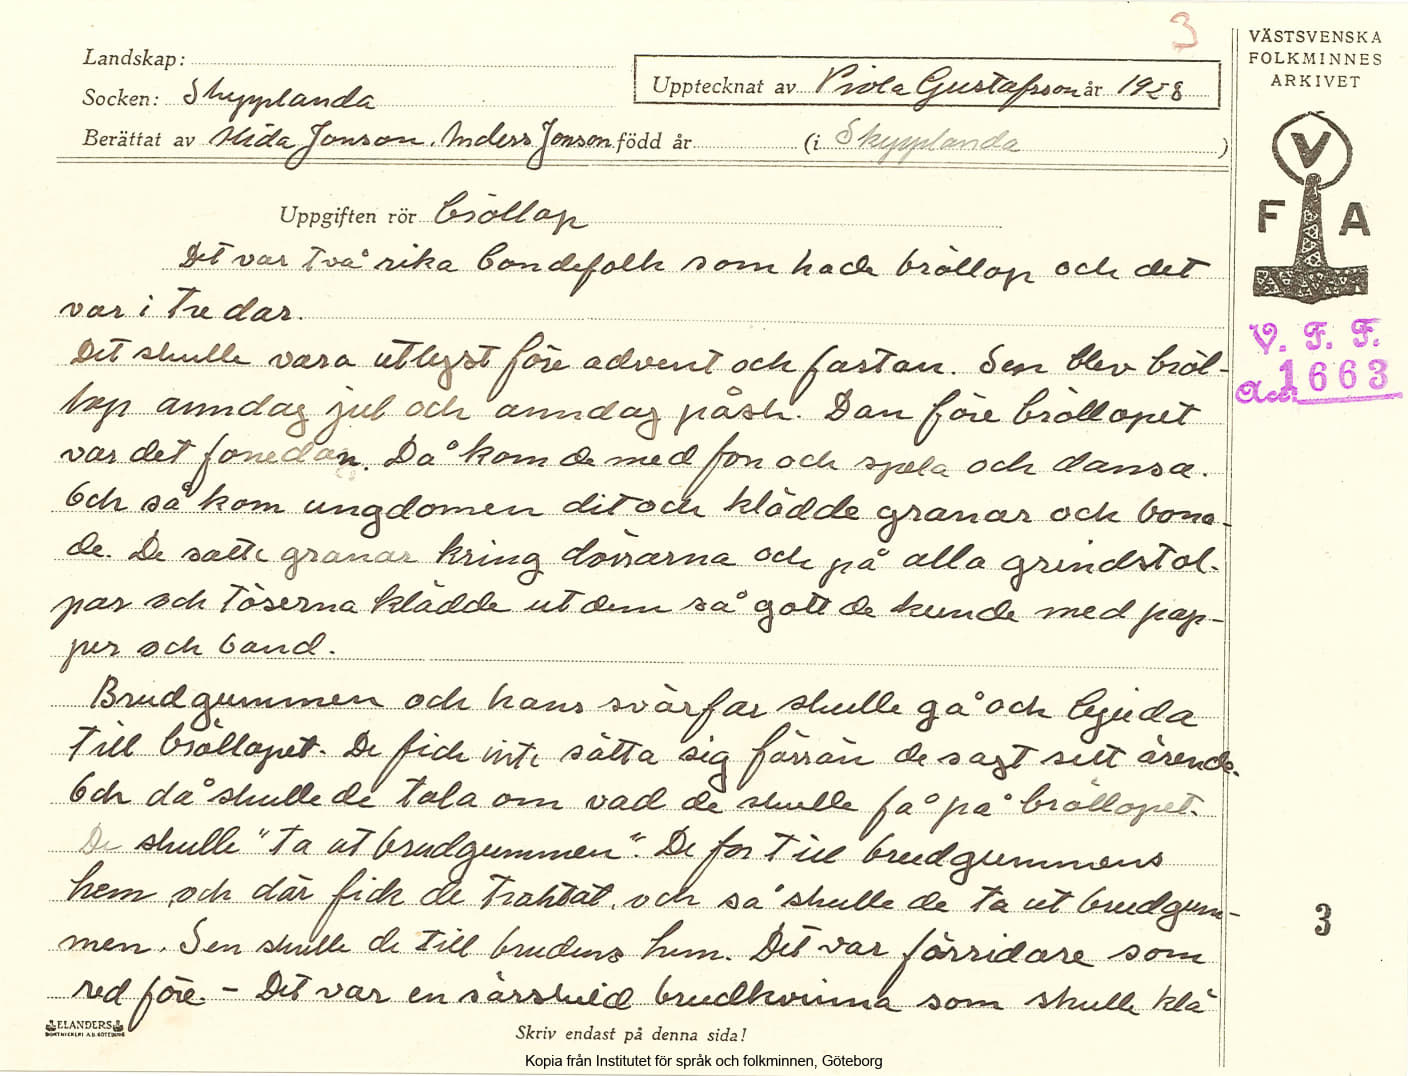 3
Landskap:
Socken: Skepplanda
Upptecknat av Viola Gustafsson år 1928
Berättat av Alida Jonson. Anders Jonson född år (i Skepplanda )
Uppgiften rör bröllop
Det var två rika bondefolk som hade bröllop och det
var i tre dar.
Det skulle vara utlyst före advent och fastan. Sen blev bröl-
lop anndag jul och anndag påsk. Dan före bröllopet
var det fonedan. Då kom de med fon och spela och dansa.
Och så kom ungdomen dit och klädde granar och bona-
de. De satte granar kring dörrarna och på alla grindstol-
par och töserna klädde ut dem så gott de kunde med pap-
per och band.
Brudgummen och hans svärfar skulle gå och bjuda
till bröllopet. De fick inte sätta sig förrän de sagt sitt ärende.
Och då skulle de tala om vad de skulle få på bröllopet.
De skulle "ta ut brudgummen". De for till brudgummens
hem och där fick de traktat, och så skulle de ta ut brudgum-
men. Sen skulle de till brudens hem. Det var förridare som
red före. - Det var en särskild brudkvinna som skulle klä
ELANDERS
BOKTRYCKERI A.B. GÖTEBORG
Skriv endast på denna sida!
Kopia från Institutet för språk och folkminnen, Göteborg
VÄSTSVENSKA
FOLKMINNES
ARKIVET
V
F A
V. F. F.
Acc. 1663
3